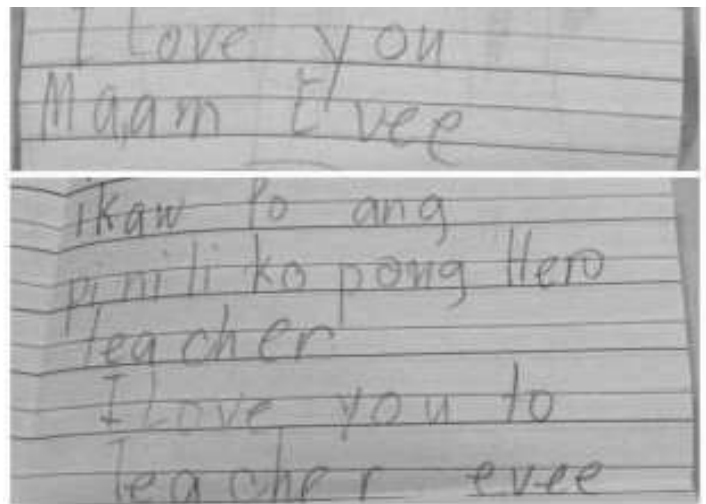 I Love you
Ma,am Evee
ikaw Po ang
pinili ko pong Hero
teacher
I Love you to
teacher evee